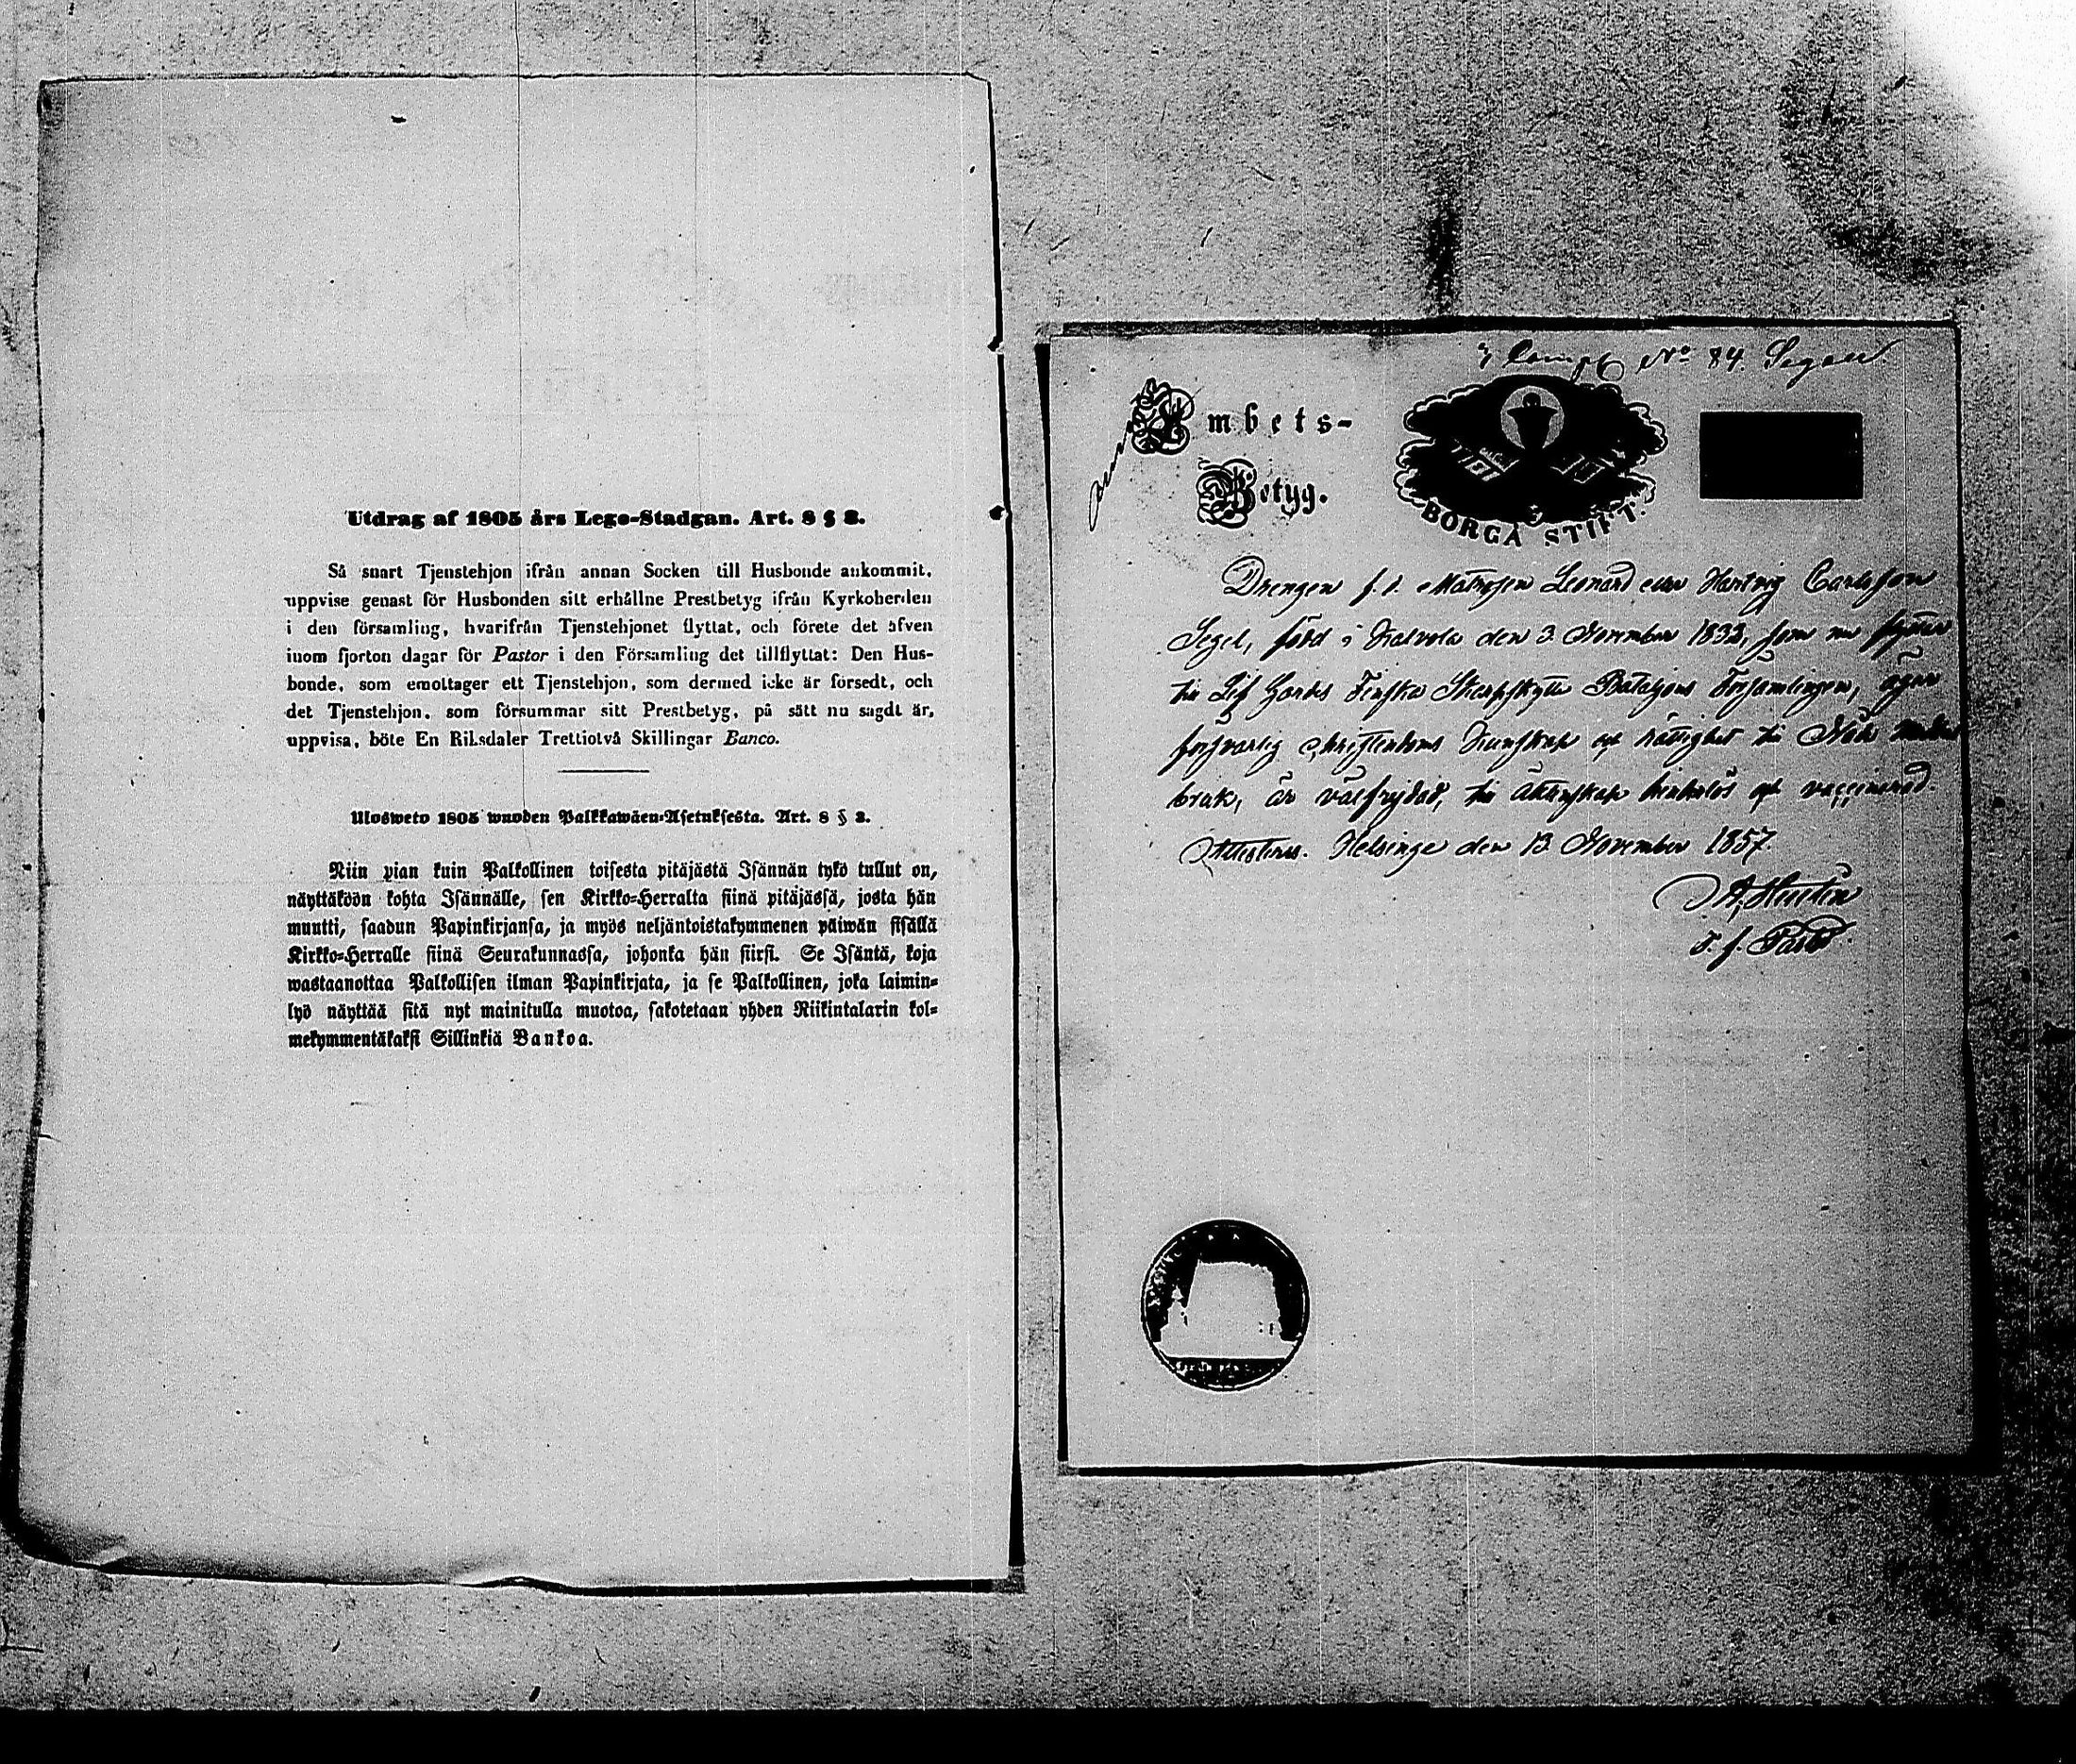 Utdrag af 1805 års Lego-Stadgan. Art. 8 § 2.
Så snart Tjenstehjon ifrån annan Socken till Husbonde ankommit,
uppvise genast för Husbonden sitt erhållne Prestbetyg ifrån Kyrkoherden
i den församling, hvarifrån Tjenstehjonet flyttat, och förete det äfven
inom fjorton dagar för Pastor i den Församling det tillflyttat: Den Hus-
bonde, som emottager ett Tjenstehjon, som dermed icke är försedt, och
det Tjenstehjon, som försummar sitt Prestbetyg, på sätt nu sagdt är,
uppvisa, böte En Riksdaler Trettiotvå Skillingar Banco.
Ulosweto 1805 wuoden Palkkawäen-Asetuksesta. Art. 8 § 2.
Niin pian kuin Palkollinen toisesta pitäjästä Isännän tykö tullut on,
näyttäköön kohta Isännälle, sen Kirkko-Herralta siinä pitäjässä, josta hän
muutti, saadun Papinkirjansa, ja myös neljäntoistakymmenen päiwän sisällä
Kirkko-Herralle siinä Seurakunnassa, johonka hän siirsi. Se Isäntä, koja
wastaanottaa Palkollisen ilman Papinkirjata, ja se Palkollinen, joka laimin-
lyö näyttää sitä nyt mainitulla muotoa, sakotetaan yhden Riikintalarin kol-
mekymmentäkaksi Sillinkiä Bankoa.
3 Comp No 84. Segel
Ambets-
Betyg.
BORGÅ STIFT.
Drengen f. d. Matrosen Leonard eller Hartvig Carlsson
Segel, född i Kalvola den 3 November 1832, som nu flyttar
till Lif Gardes Finska Skarpskytte Bataljons Församlingen, äger
försvarlig Christendoms Kunskap och rättighet till H. H. Nattvards
bruk, är välfrejdad, till äktenskap hinderlös och vaccinerad.
Attesteras. Helsinge den 13 November 1857.